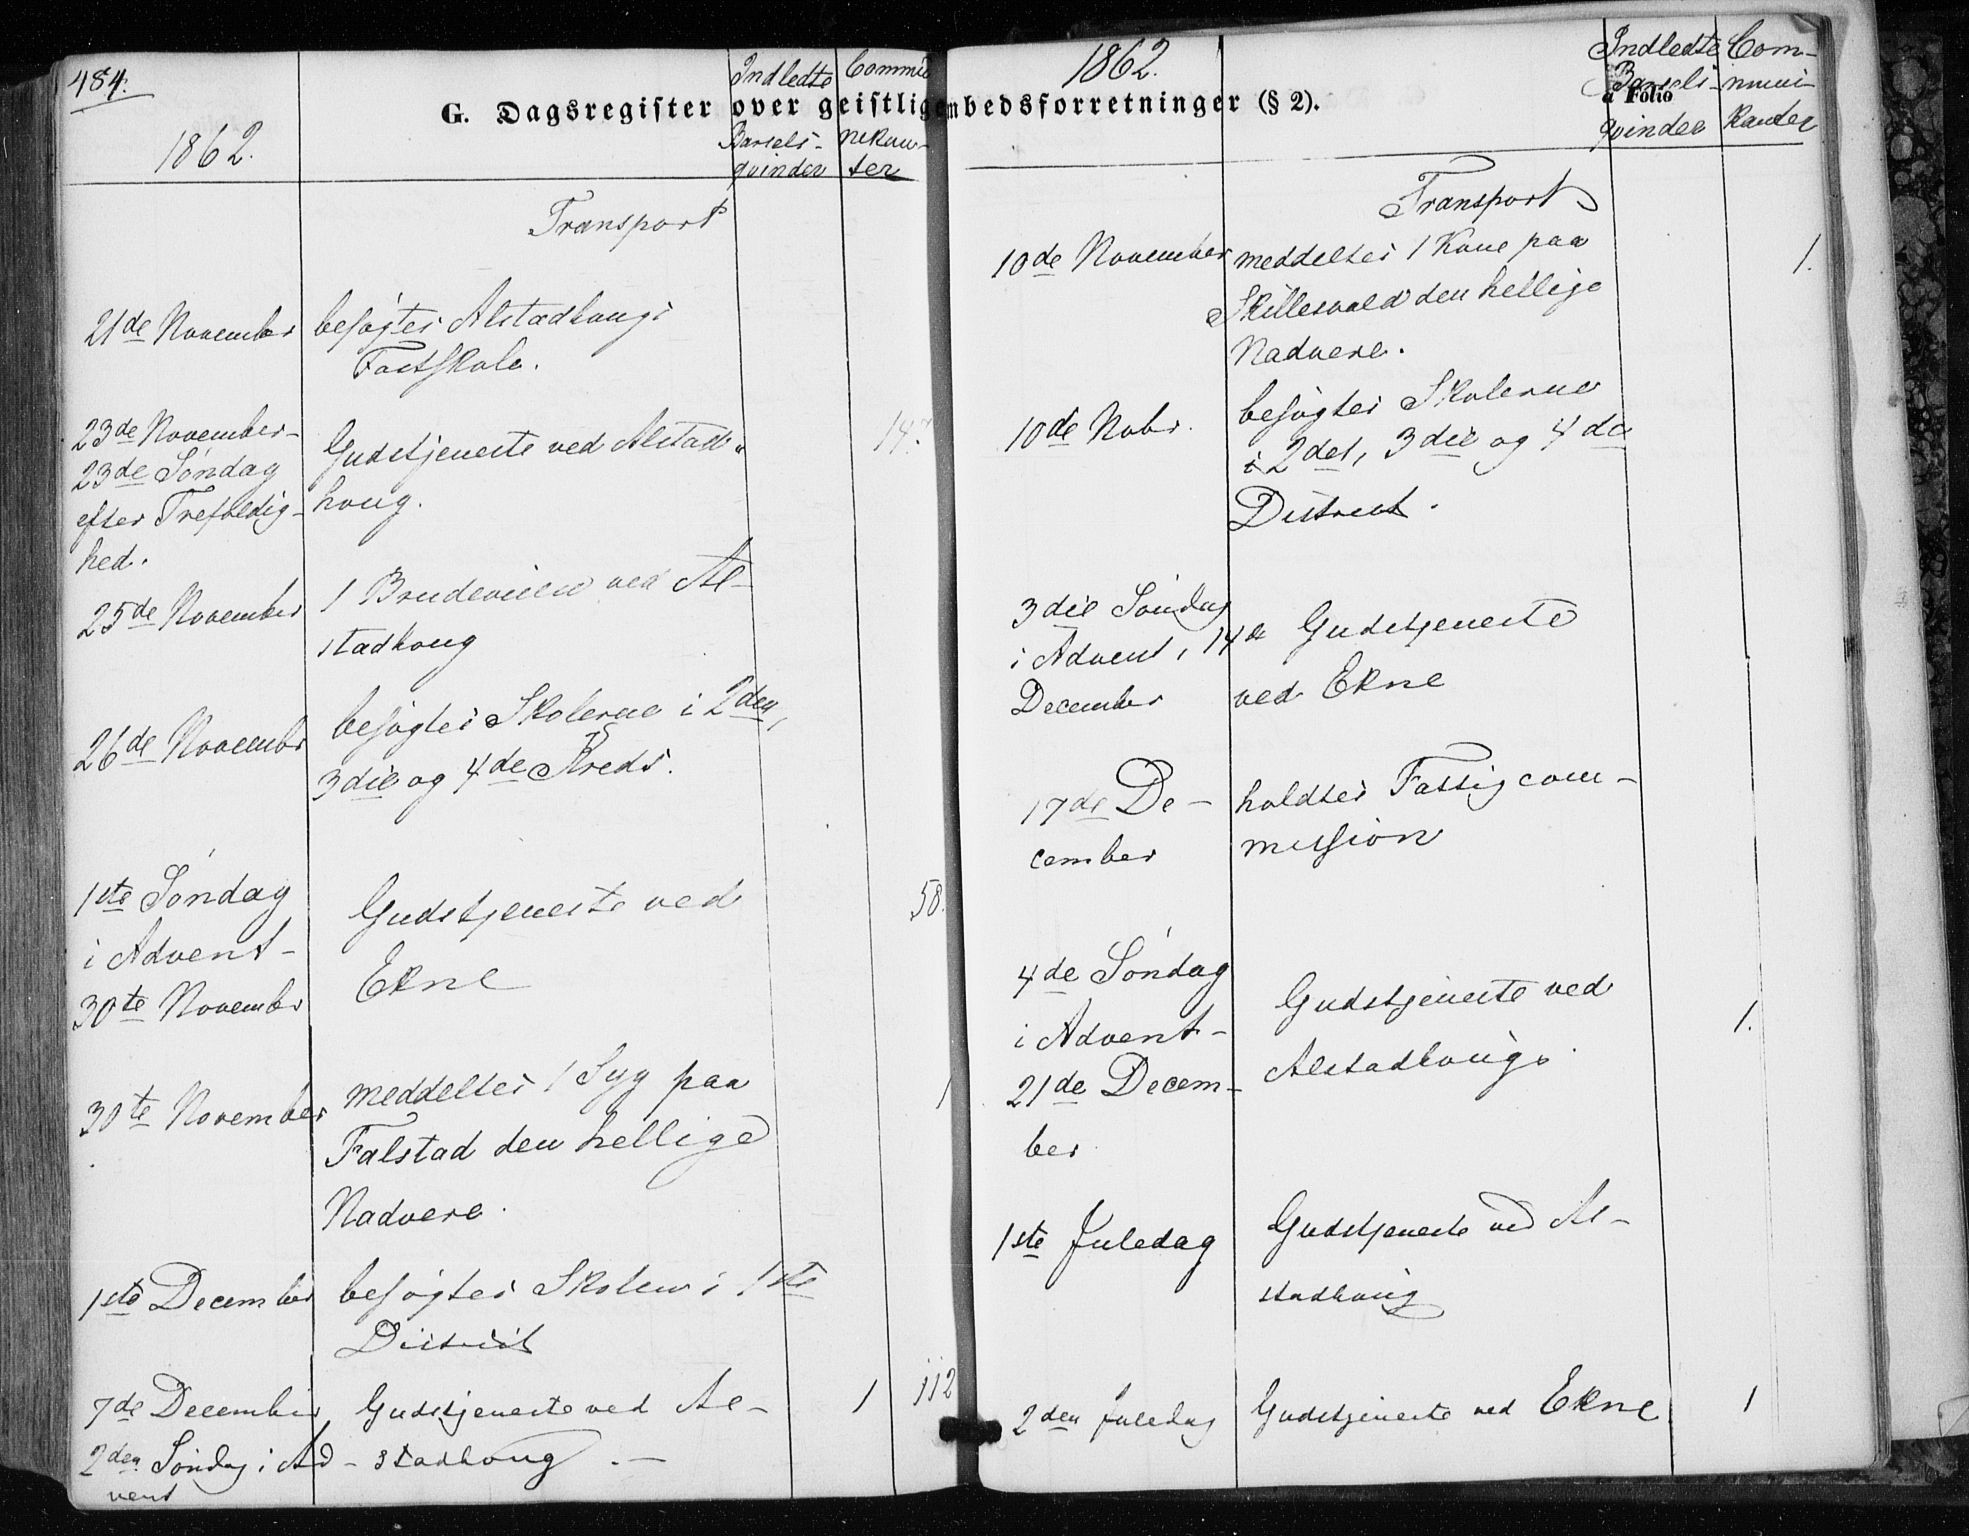 484.
G. Dagsregister over geistlige
1862.
Indledte
Barsels-
qvinder
Commu
nikan-
ter
Transport
21de November
besøgtes Alstadhougs
Fastskole.
23de November-
23de Søndag
efter Trefoldig-
hed.
Gudstjeneste ved Alstad-
houg.
14.
25de November
1 Brudevielse ved Al-
stadhoug
26de November
besøgtes Skolerne i 2den,
3die og 4de Kreds.
1ste Søndag
i Advent-
30te November
Gudstjeneste ved
Ekne
58.
30te November
meddeltes 1 Syg paa
Falstad den hellige
Nadvere.
1
1ste December
besøgtes Skolen i 1ste
District
7de December
2den Søndag i Ad-
vent
Gudstjeneste ved Al-
stadhoug.-
1
112
1862.
mbedsforretninger (§ 2).
a Folio
Indledte
Barsels-
qvinder
Com-
muni-
kanter
Transport
10de November
meddeltes 1 Kone paa
Skillesvald den hellige
Nadvere.
1.
10de Nobr.
besøgtes Skolerne
i 2det, 3die og 4de
District.
3die Søndag
i Advent, 14de
December
Gudstjeneste
ved Ekne
17de De-
cember
holdtes Fattigcom-
mission
4de Søndag
i Advent-
21de Decem-
ber
Gudstjeneste ved
Alstadhoug.
1.
1ste Juledag
Gudstjeneste ved Al-
stadhoug
2den Juledag
Gudstjeneste ved Ekne
1